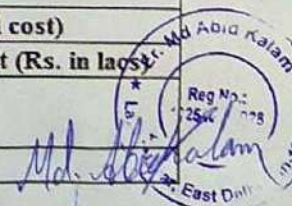 cost)
t (Rs. in lacs)
Md Abid Kalam
Reg No.:
East Del
Md. Abid Kalam